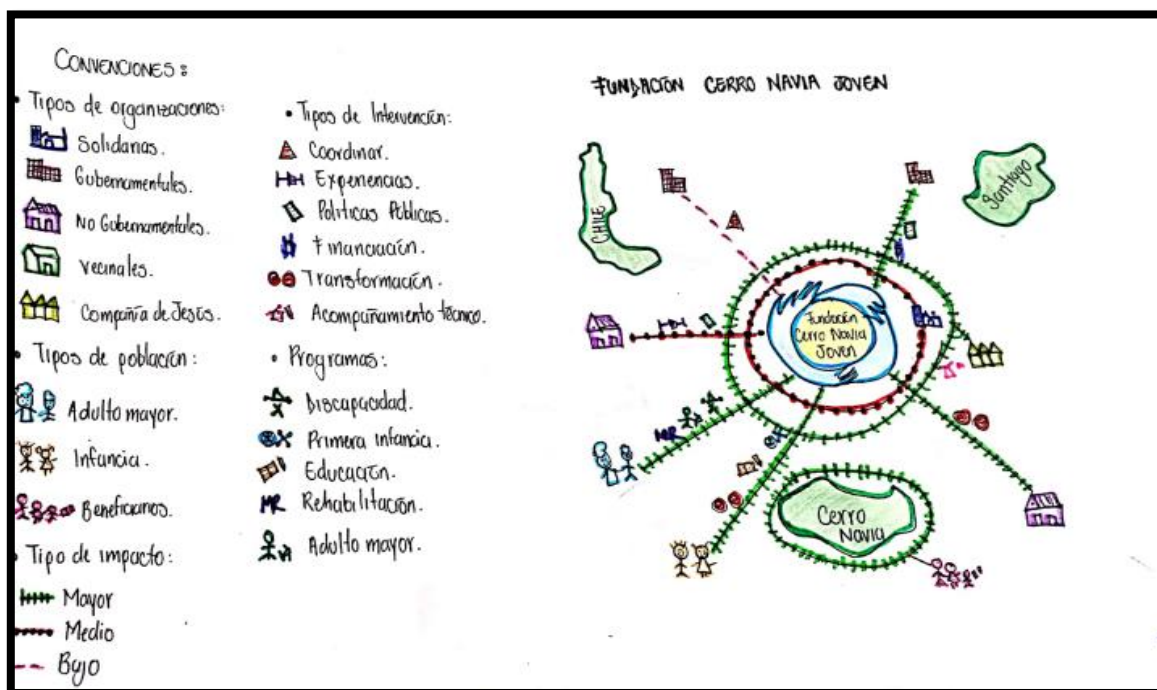 CONVENCIONES:
• Tipos de organizaciones:
Solidarias.
Gubernamentales.
No Gubernamentales.
Vecinales.
Compañía de Jesús.
• Tipos de población:
Adulto mayor.
Infancia.
Beneficiarios.
• Tipo de impacto:
Mayor
Medio
Bajo
• Tipos de Intervención:
Coordinar.
Experiencias.
Políticas Públicas.
Financiación.
Transformación.
Acompañamiento técnico.
• Programas:
Discapacidad.
Primera infancia.
Educación.
MR Rehabilitación.
Adulto mayor.
FUNDACIÓN CERRO NAVIA JOVEN
CHILE
Santiago
Fundación
Cerro Navia
Joven
MR
Cerro
Navia